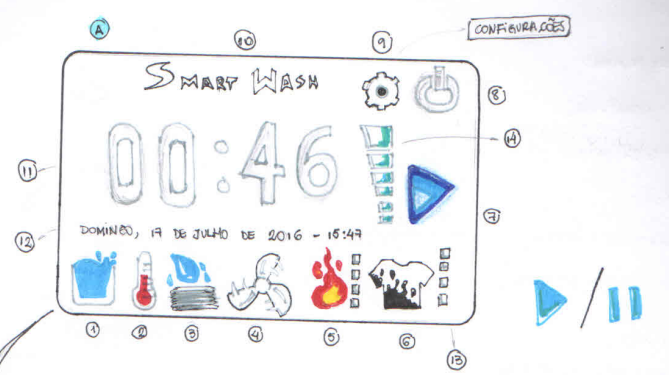 A
10
9
CONFIGURAÇÕES
SMART WASH
8
14
00:46
11
7
12
DOMINGO, 17 DE JULHO DE 2016 - 15:47
1
2
3
4
5
6
13